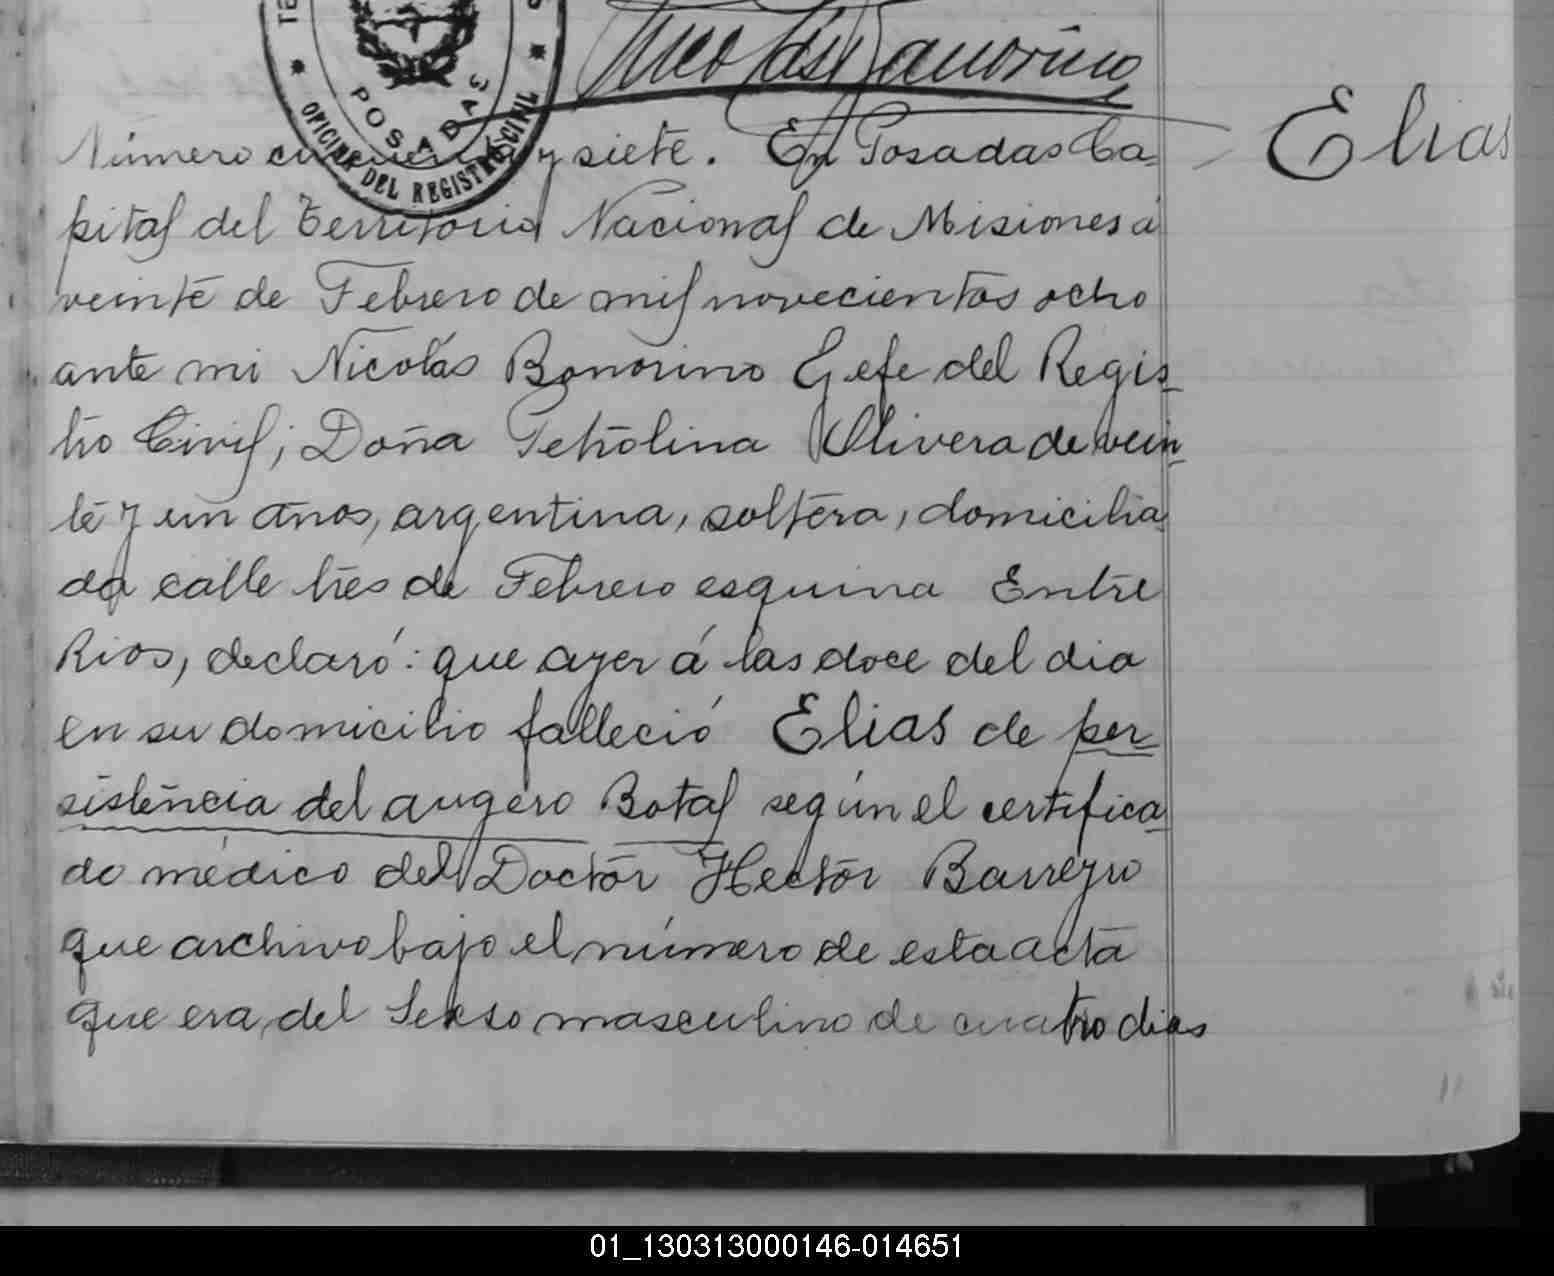 Nicolás Bonorino
POSADAS
OFICINA DEL REGISTRO CIVIL
Elias
Número cincuenta y siete. En Posadas Ca-
pital del Territorio Nacional de Misiones á
veinte de Febrero de mil novecientos ocho
ante mi Nicolás Bonorino Gefe del Regis-
tro Civil; Doña Petrolina Olivera de vein-
te y un años, argentina, soltera, domicilia
da calle tres de Febrero esquina Entre
Rios, declaró: que ayer á las doce del dia
en su domicilio falleció Elias de per-
sistencia del augero Botal según el certifica
do médico del Doctor Hector Barreyro
que archivo bajo el número de esta acta
que era, del Sexso masculino de cuatro dias
01_130313000146-014651